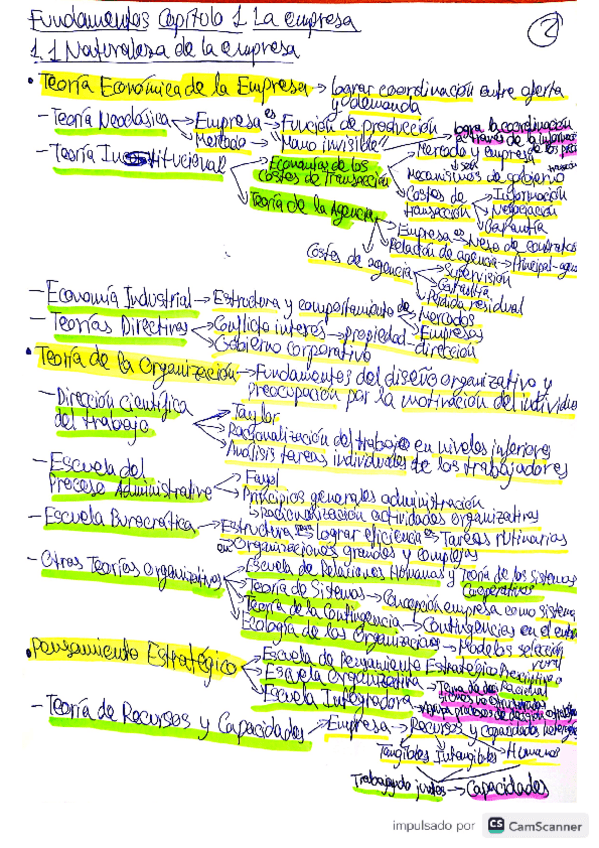 Fundamentos Capítulo 1 La empresa
2
1.1 Naturaleza de la empresa
• Teoría Económica de la Empresa → lograr coordinación entre oferta y demanda
- Teoría Neoclásica → Empresa es → Función de producción
Mercado → "Mano invisible" → logra la coordinación a través de la
- Teoría Institucional → Economías de los Costes de Transacción
Mercado y empresa son
Mecanismos de gobierno
Costes de transacción → Información
Negociación
Garantía
Teoría de la Agencia
Empresa es Nexo de contratos
Relación de agencia → Principal-agente
Costes de agencia → Supervisión
Garantía
Pérdida residual
- Economía Industrial → Estructura y comportamiento de → Mercados
Empresas
- Teorías Directivas → Conflicto interés → propiedad - dirección
Gobierno corporativo
• Teoría de la Organización → Fundamentos del diseño organizativo y
Preocupación por la motivación del individuo
- Dirección científica del trabajo → Taylor
Racionalización del trabajo en niveles inferiores
Análisis tareas individuales de los trabajadores
- Escuela del Proceso Administrativo → Fayol
Principios generales administración
→ Racionalización actividades organizativas
- Escuela Burocrática → Estructura → lograr eficiencia → Tareas rutinarias
en Organizaciones grandes y complejas
- Otras Teorías Organizativas → Escuela de Relaciones Humanas y Teoría de los sistemas Cooperativos
Teoría de Sistemas → Concepción empresa como sistema
Teoría de la Contingencia → Contingencias en el
Ecología de las Organizaciones → Modelos selección
• Pensamiento Estratégico → Escuela de Pensamiento Estratégico
Escuela Organizativa → Toma de
Escuela Integradora
- Teoría de Recursos y Capacidades → Empresa → Recursos y capacidades
Tangibles Intangibles Humanos
Trabajando juntos → Capacidades
impulsado por CS CamScanner